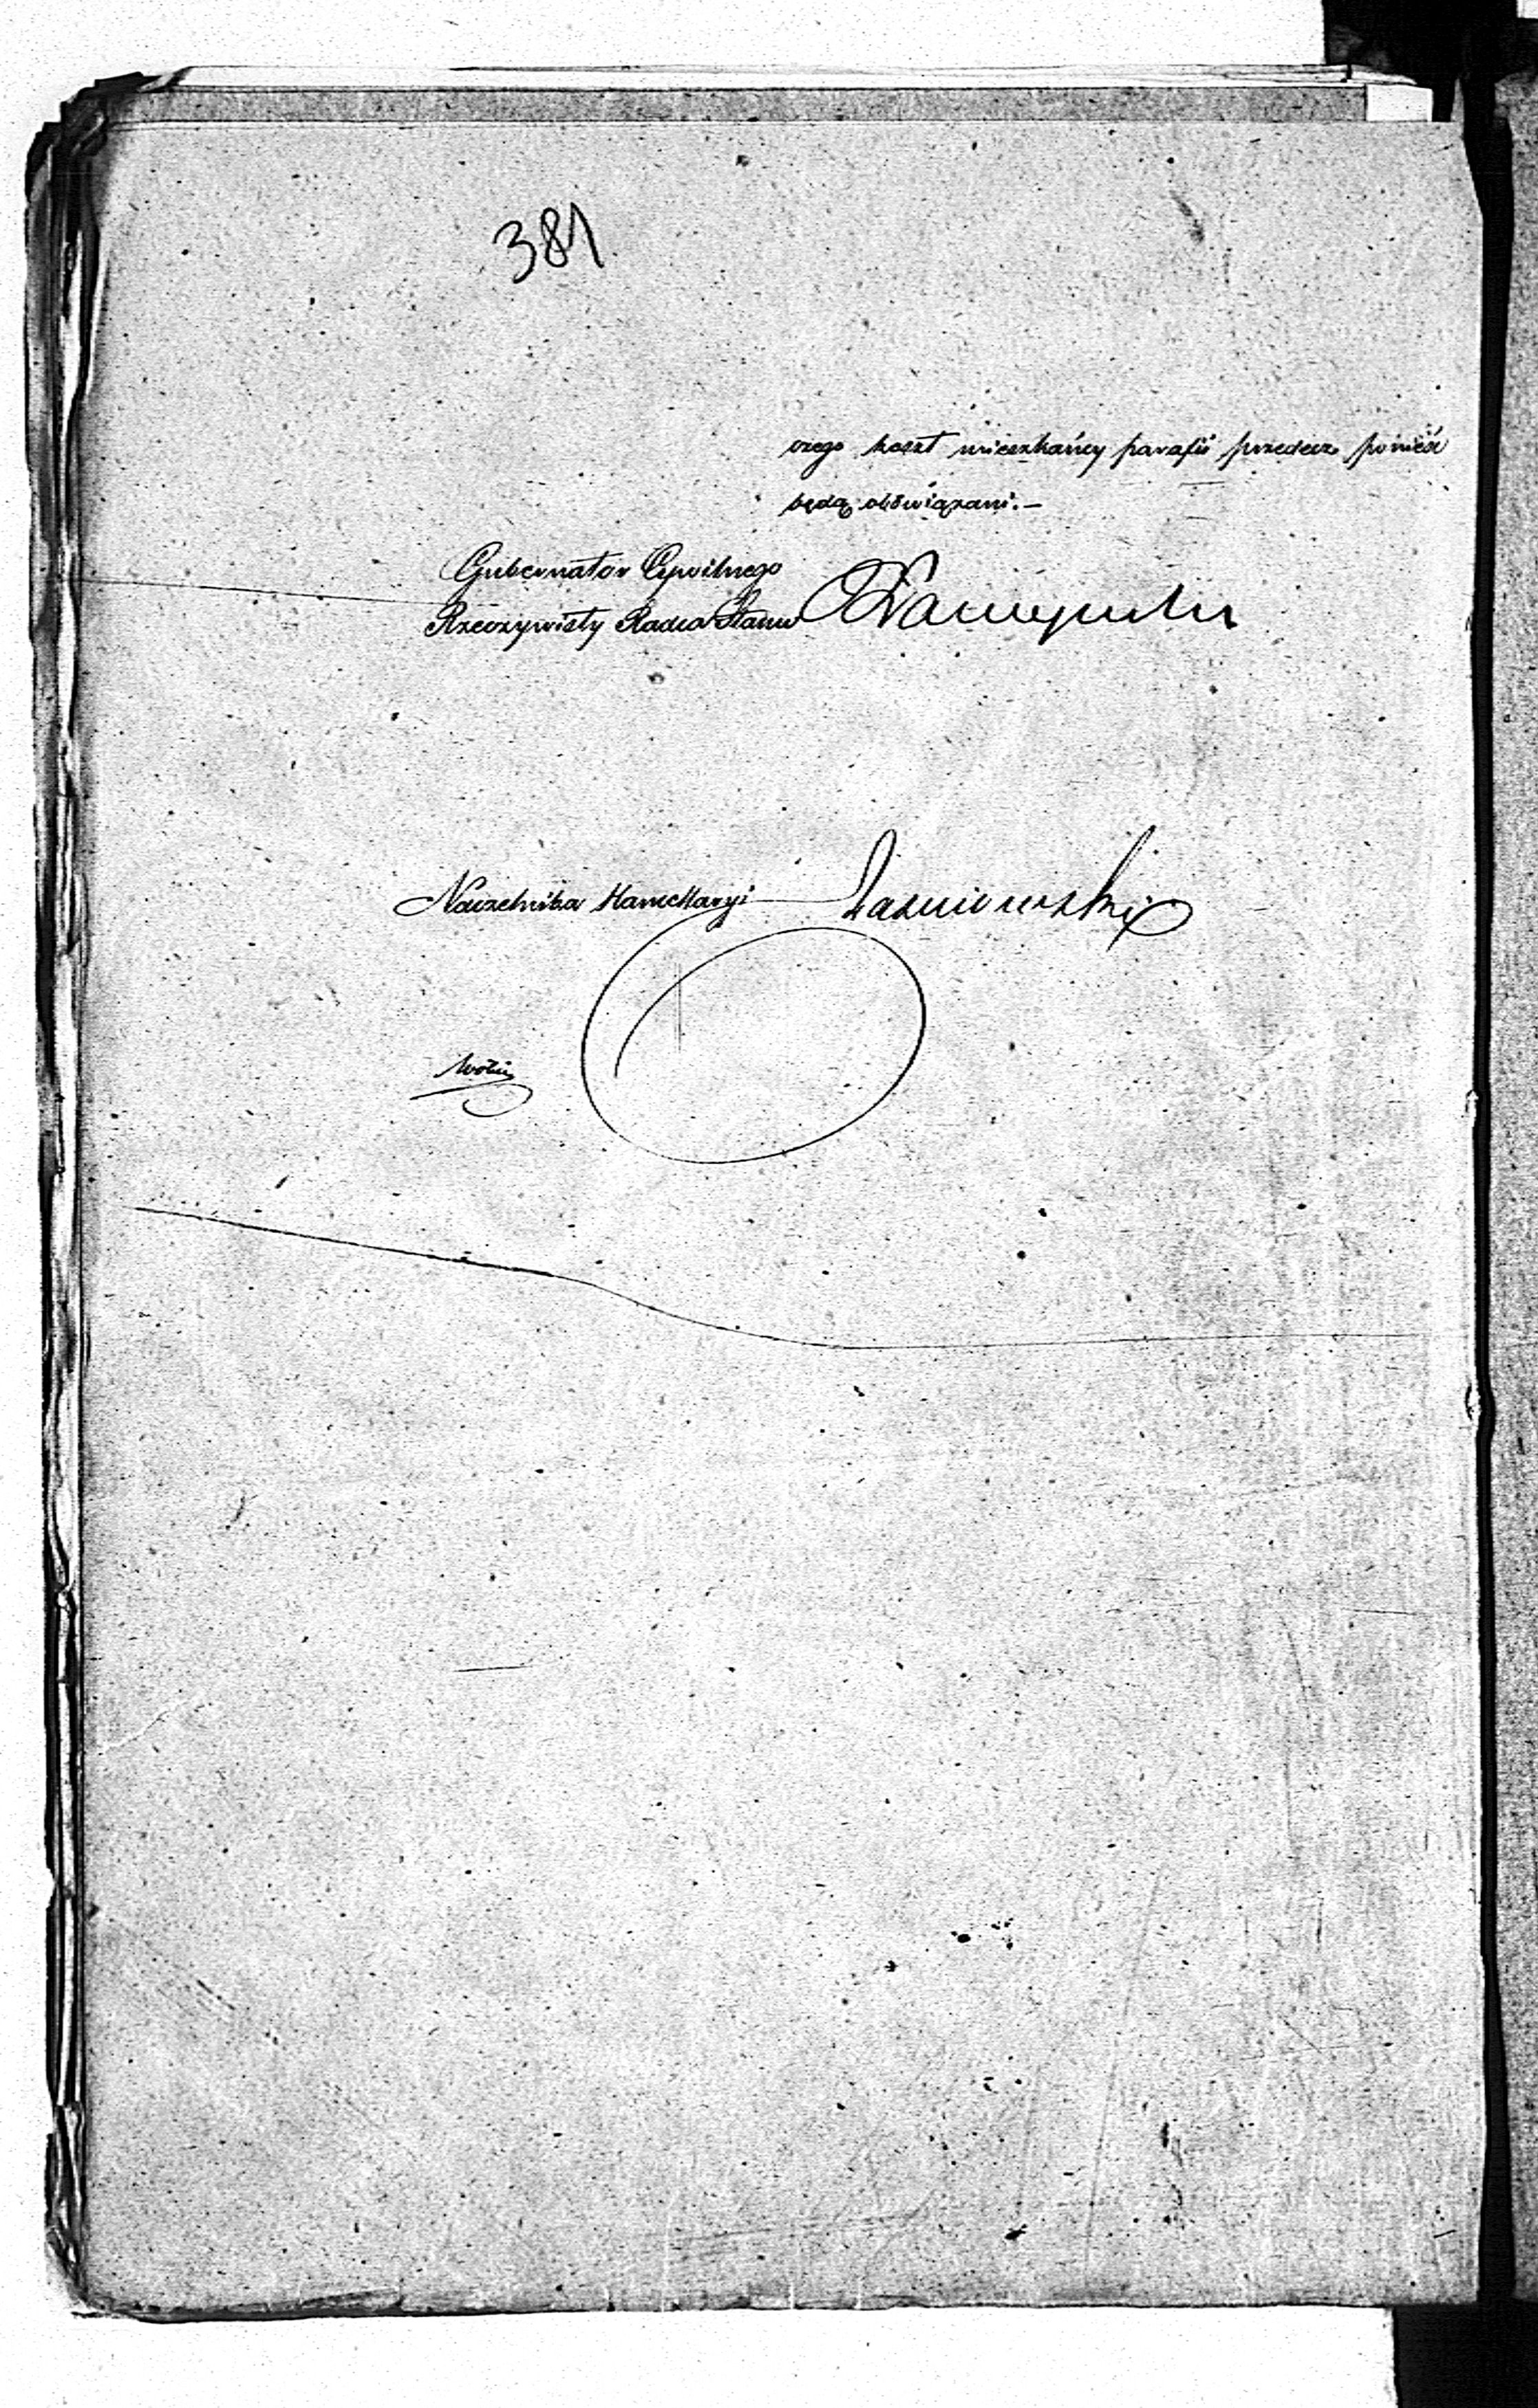 381.
czego koszt mieszkańcy parafii przedecz ponieść
będą obowiązani.—
Gubernator Cywilnego
Rzeczywisty Radca Stanu
Naczelnika Kancellaryi